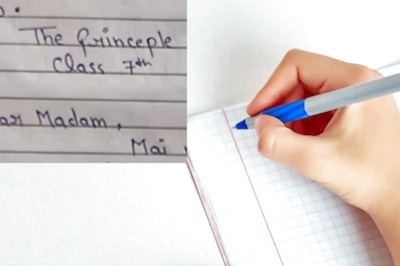 The Princeple
Class 7th
Madam,
Mai